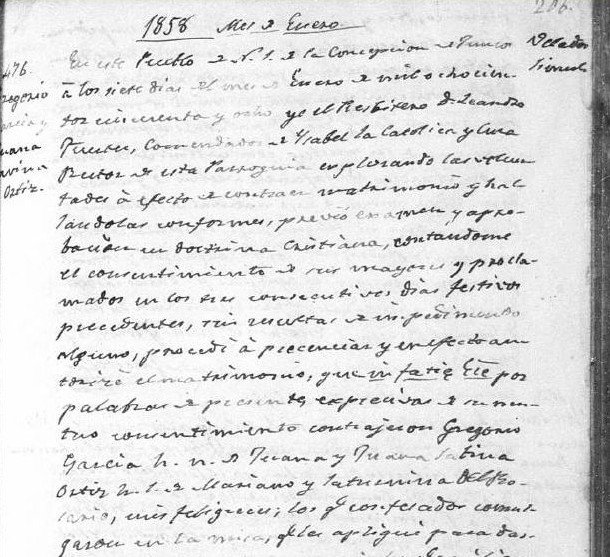 1858 Mes de Enero
206.
476.
Gregorio
Garcia y
Juana
Savina
Ortiz.
Velados
simul
En este Pueblo de N. S. de la Concepcion de
á los siete dias del mes de Enero de mil ochocien-
tos cincuenta y ocho, yo el Presbitero D. Leandro
Puentes, Comendador de Ysabel la Catolica y Cura
Rector de esta Parroquia explorando las volun-
tades á efecto de contraer matrimonio y hal-
landolas conformes, previó examen y apro-
bacion en doctrina Cristiana, contandome
el consentimiento de sus mayores y procla-
mados en los tres consecutivos dias festivos
precedentes, sin resultas de impedimento
alguno, procedí á precenciar y en efecto au-
torizé el matrimonio, que in fatie Eíe por
palabras de presente, exprecivas de su mu-
tuo consentimiento contrajeron Gregorio
Garcia h. n. de Juana y Juana Sabina
Ortiz h. l. de Mariano y Saturnina Del Ro-
sario, mis feligreses; los q̃ confesados comul-
garon en la misa, q̃ les apliqué para das-